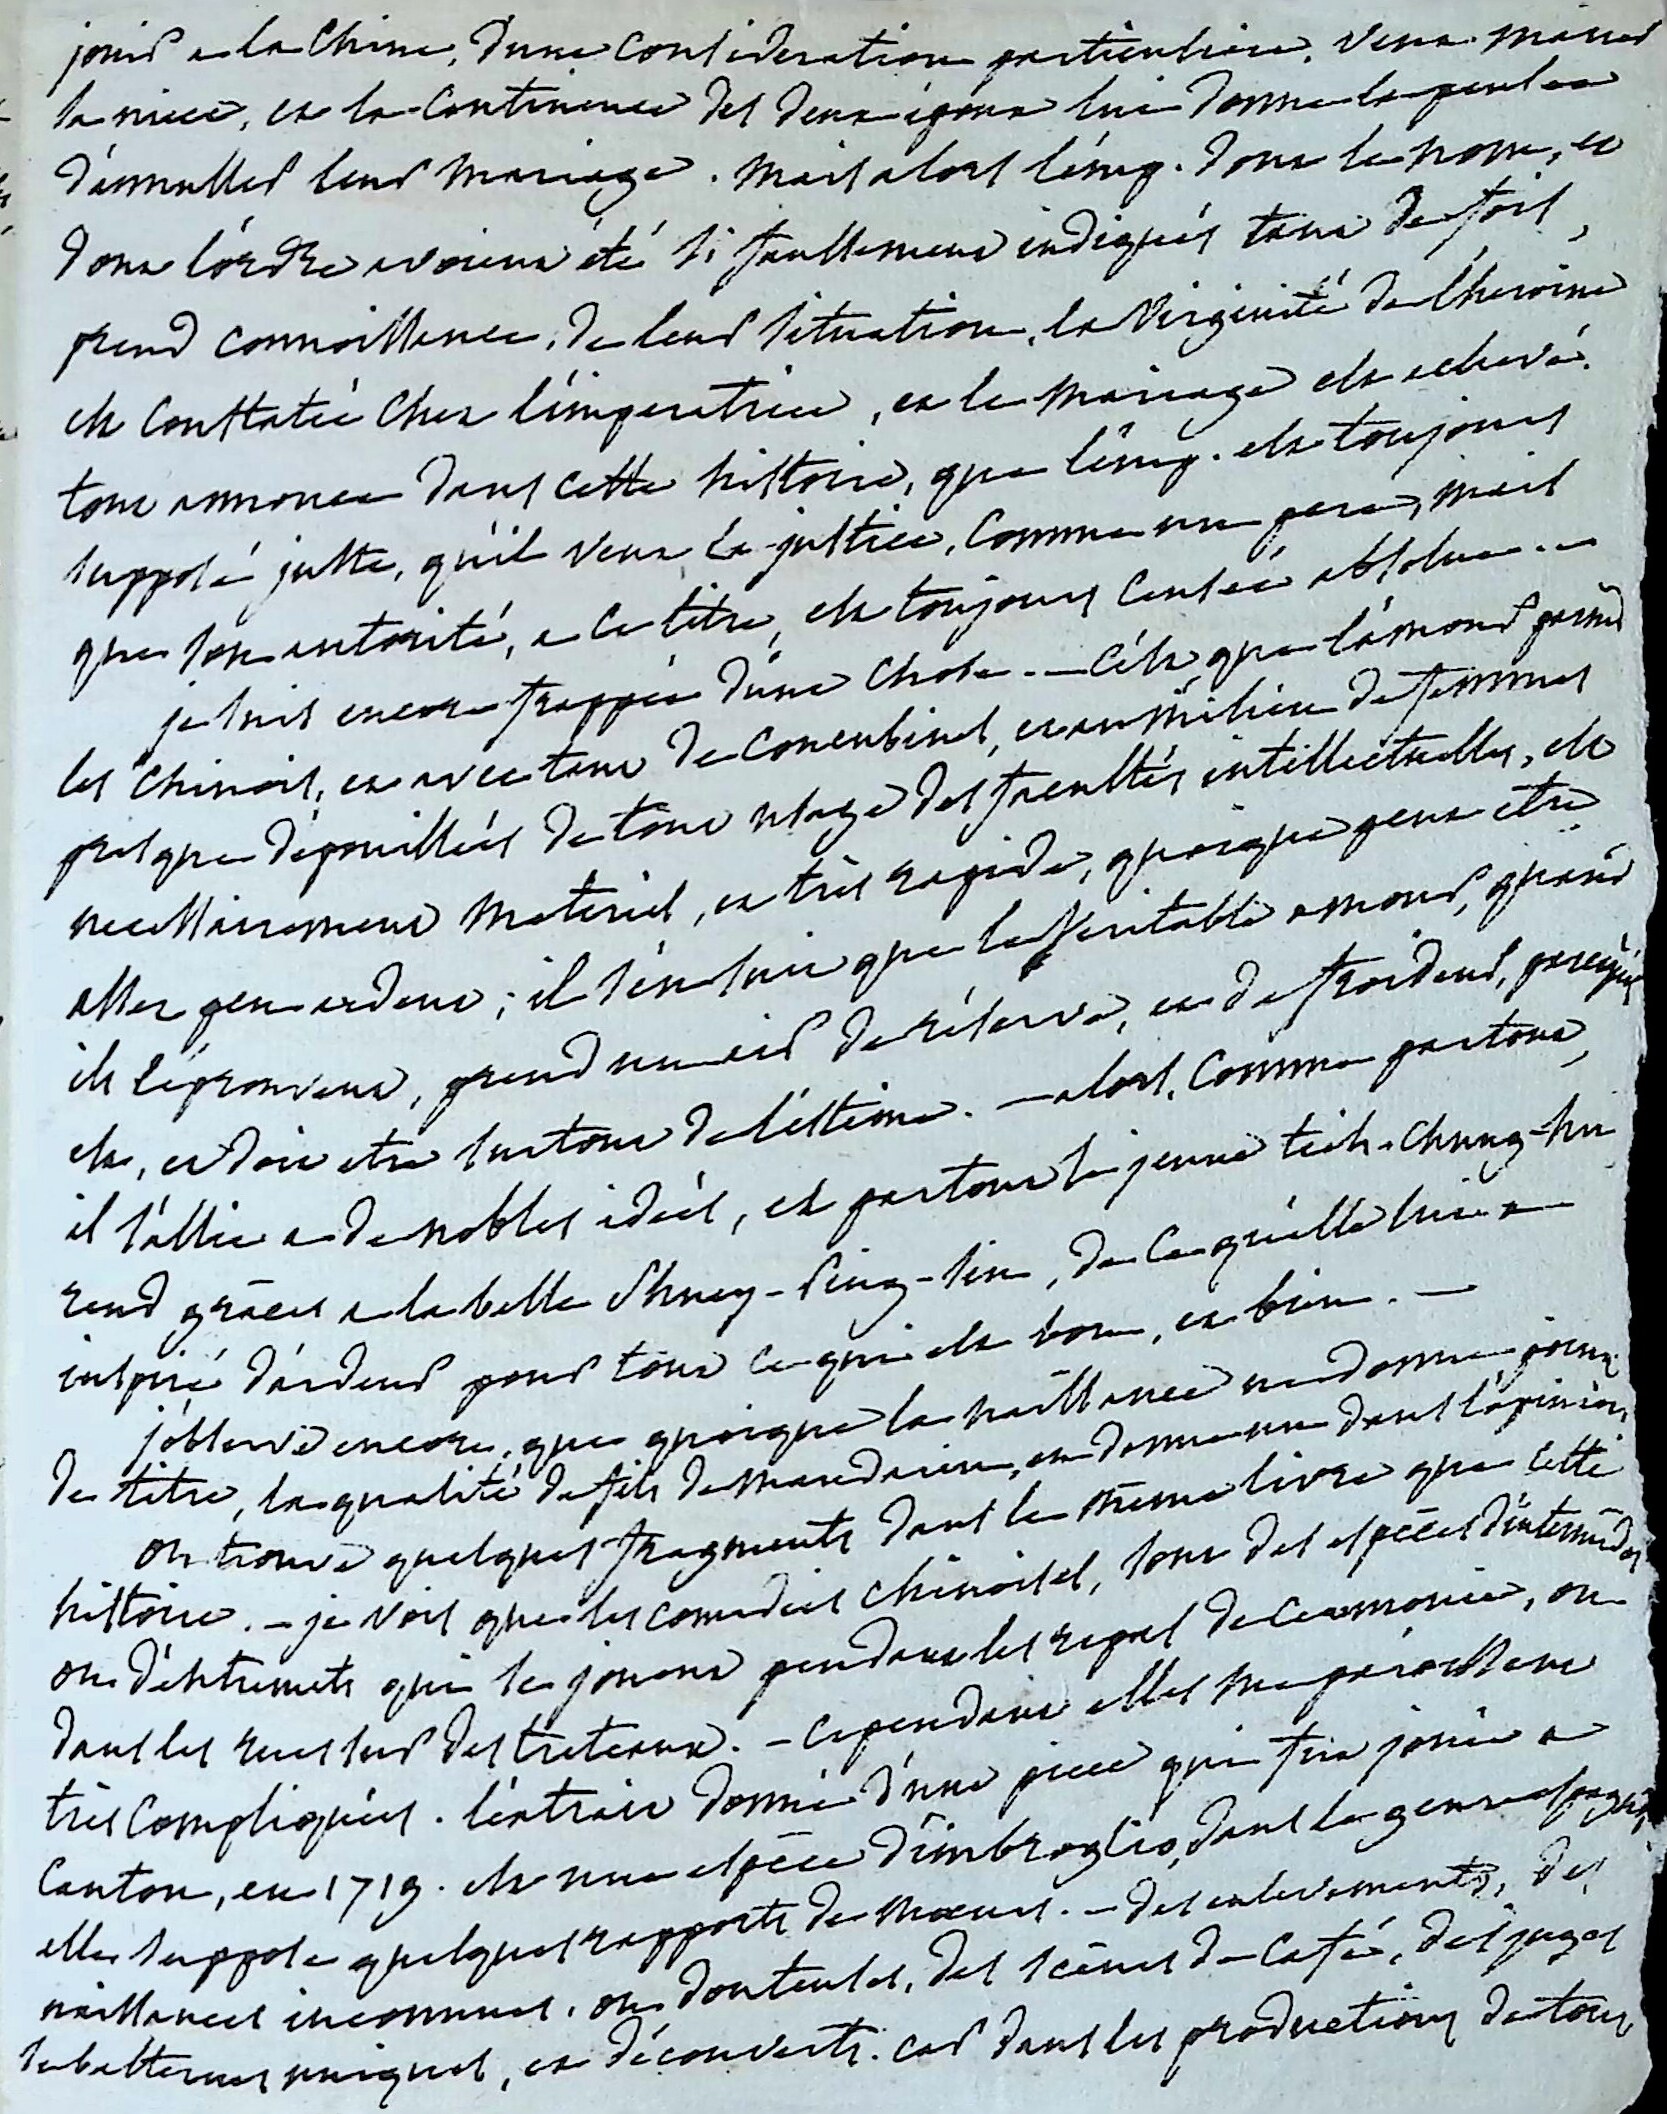 jouit a la Chine, d'une consideration particuliere, veut marier
sa niece, et la continence des deux époux lui donne la pensée
d'annuller leur mariage. mais alors l'emp. dont le nom, et
dont l'ordre avoient été si faussement indiqués tant de fois,
prend connoissance, de leur situation, la virginité de l'heroine
est constatée chez l'imperatrice, et le mariage est achevé.
tout annonce dans cette histoire, que l'emp. est toujours
supposé juste, qu'il veut la justice, comme un pere, mais
que son autorité, a ce titre, est toujours censée absolue. —
je suis encore frappée d'une chose. — C'est, que l'amour parmi
les chinois, et avec tant de concubines, et au milieu de femmes
presque dépouillées de tout usage des facultés intellectuelles, est
necessairement materiel, et très rapide, quoique peut etre
assez peu ardent; il s'en suit que le veritable amour, quand
ils l'éprouvent, prend un air de réserve, et de froideur, parcequ'il
est, et doit etre surtout de l'estime. — alors, comme partout,
il s'allie a de nobles idées, et partout le jeune tieh-chung-hu
rend graces a la belle Shuey-Ping-sin, de ce qu'elle lui a
inspiré d'ardeur pour tout ce qui est bon, et bien. —
j'observe encore, que quoique la naissance ne donne point
de titre, la qualité de fils de mandarin, en donne un dans l'opinion.
on trouve quelques fragments dans le même livre que cette
histoire. — je vois que les comedies chinoises, sont des especes d'intermedes
ou d'entremets qui se jouent pendant les repas de ceremonie, ou
dans les rues sur des treteaux. — cependant elles me paroissent
très compliquées. l'extrait donné d'une piece qui fut jouée a
Canton, en 1719. est une espèce d'imbroglio, dans le genre espagnol,
elle suppose quelques rapports de moeurs. — des enlevements, des
naissances inconnues, ou douteuses, des scènes de café, des juges
subalternes iniques, et découverts. car dans les productions de tout